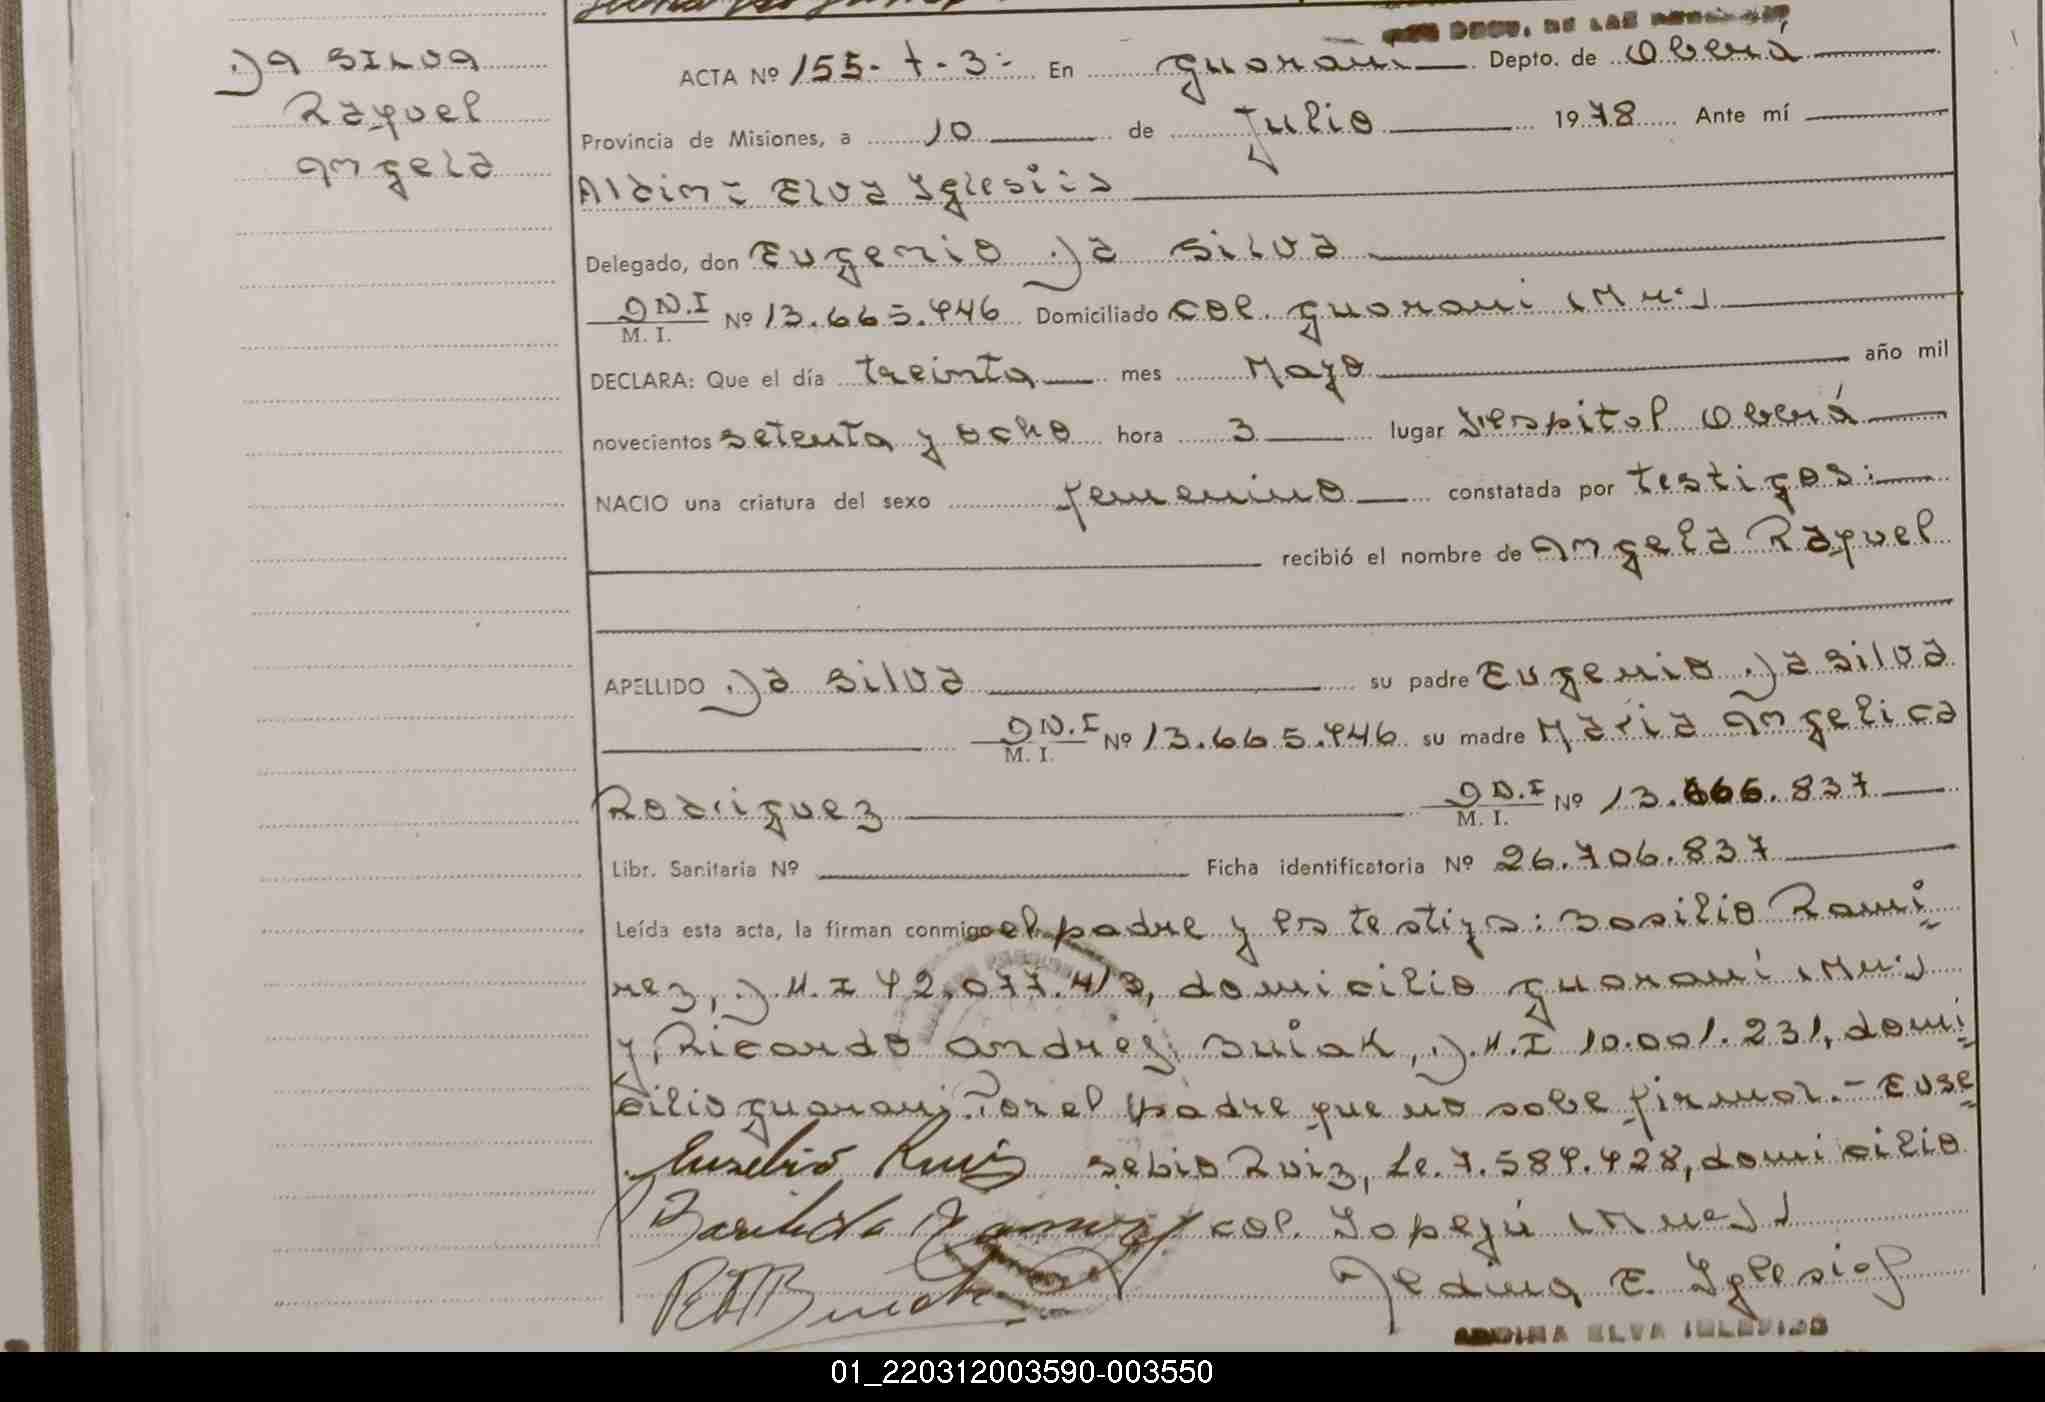 DA SILVA
Raquel
Angela
ENC DPTO. DE LAS PERSONAS
ACTA Nº 155- t-3- En Guaraní Depto. de Oberá
Provincia de Misiones, a 10 de Julio 1978 Ante mí
Aldina Elva Iglesias
Delegado, don Eugenio Da Silva
D N.I
M. I. Nº 13.665.446 Domiciliado Col. Guaraní (Mnes)
DECLARA: Que el día treinta mes Mayo año mil
novecientos setenta y ocho hora 3 lugar Hospital Oberá
NACIO una criatura del sexo femenino constatada por testigos:
recibió el nombre de Angela Raquel
APELLIDO Da Silva su padre Eugenio Da Silva
D N.I
M. I. Nº 13.665.446 su madre Maria Angelica
Rodriguez D N.I
M. I. Nº 13.666.837
Libr. Sanitaria Nº Ficha identificatoria Nº 26.706.837
Leída esta acta, la firman conmigo el padre y los testigos: Basilio Rami=
rez, D.N.I 42.077.413, domicilio Guaraní (Mnes)
y, Ricardo Andres Buiak, D.N.I 10.001.231, domi=
cilio Guaraní. Por el padre que no sabe firmar.- Euse=
Eusebio Ruiz sebio Ruiz, Le. 7.584.428, domicilio
Ramirez Col. Yapeyú (Mnes)
Aldina E. Iglesias
ALDINA ELVA IGLESIAS
01_220312003590-003550